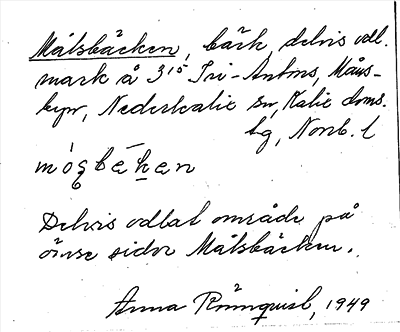 Målsbäcken, bäck, delvis odl.
mark å 3¹⁵ Tri-Antons, Måns-
byn, Nederkalix sn, Kalix doms.
bg, Norrb. l
Delvis odlat område på
ömse sidor Målsbäcken.
Anna Rönnquist, 1949